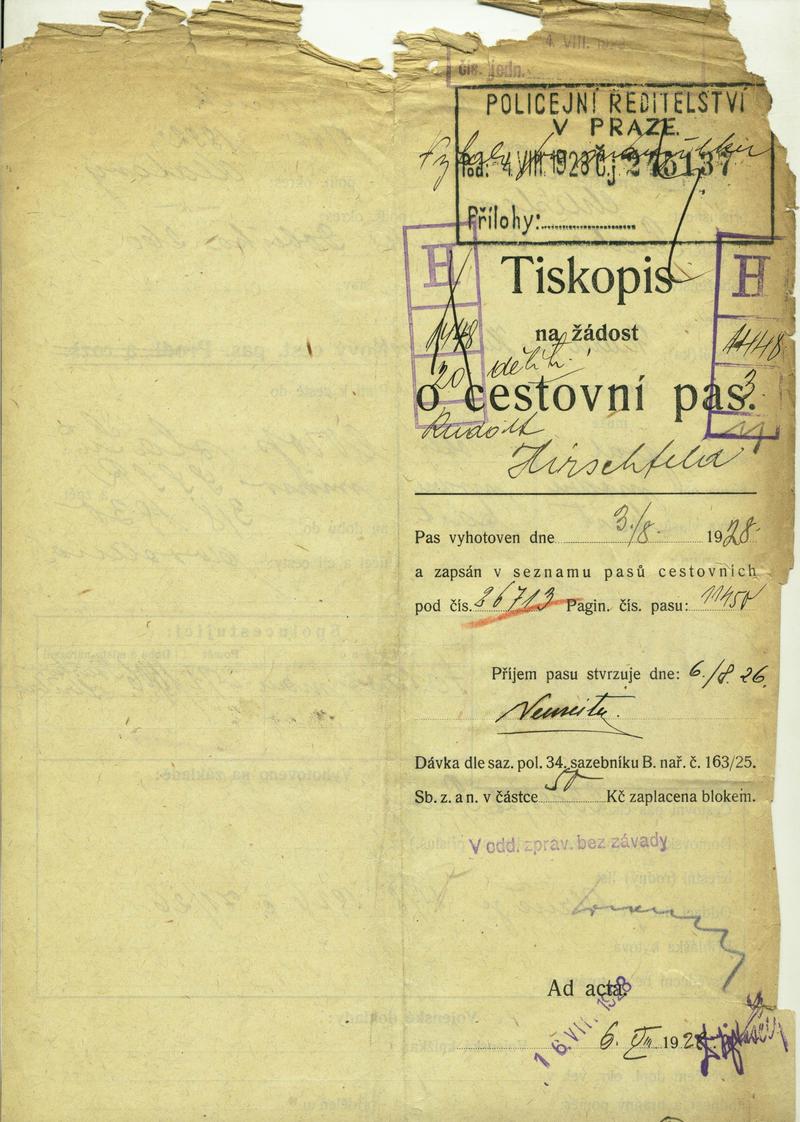 4. VIII. 1928
čís. jedn.
POLICEJNÍ ŘEDITELSTVÍ
V PRAZE.
Pod: 4. VIII. 1928 Čj 273137
Přílohy:
H H
Tiskopis
1448 1448
na žádost
20 3
o cestovní pas.
Rudolf
Hirschfeld
Pas vyhotoven dne 3./8. 1928.
a zapsán v seznamu pasů cestovních
pod čís. 26713 Pagin. čís. pasu: 11450
Příjem pasu stvrzuje dne: 6./8. 26.
Dávka dle saz. pol. 34. sazebníku B. nař. č. 163/25.
Sb. z. a n. v částce 50 Kč zaplacena blokem.
V odd. zprav. bez závady
Ad acta:
16. VII. 1928
6. VIII 1928